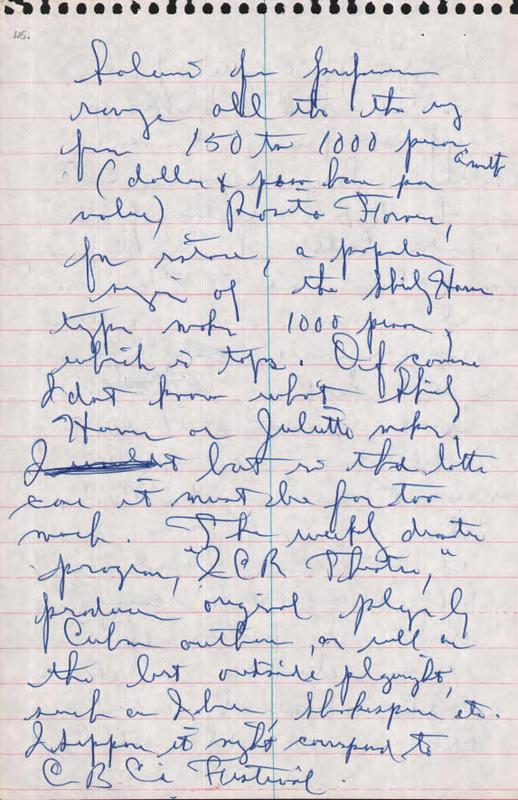 45.
Salaries for performers
range all the the way
from 150 to 1000 pesos
a month
(dollar & peso have par
value) Rosita Fornes,
for instance, a popular
singer of the Shirley Horne
type makes 1000 pesos,
which is tops. Of course
I don't know what Shirley
Horne or Juliette makes,
but in the latter
case it must be far too
much. The weekly drama
program, "ICR Theatre,"
produces original plays by
Cuban authors, as well as
the best outside playwrights,
such as Ibsen, Shakespeare etc.
I suppose it might correspond to
CBC's Festival.